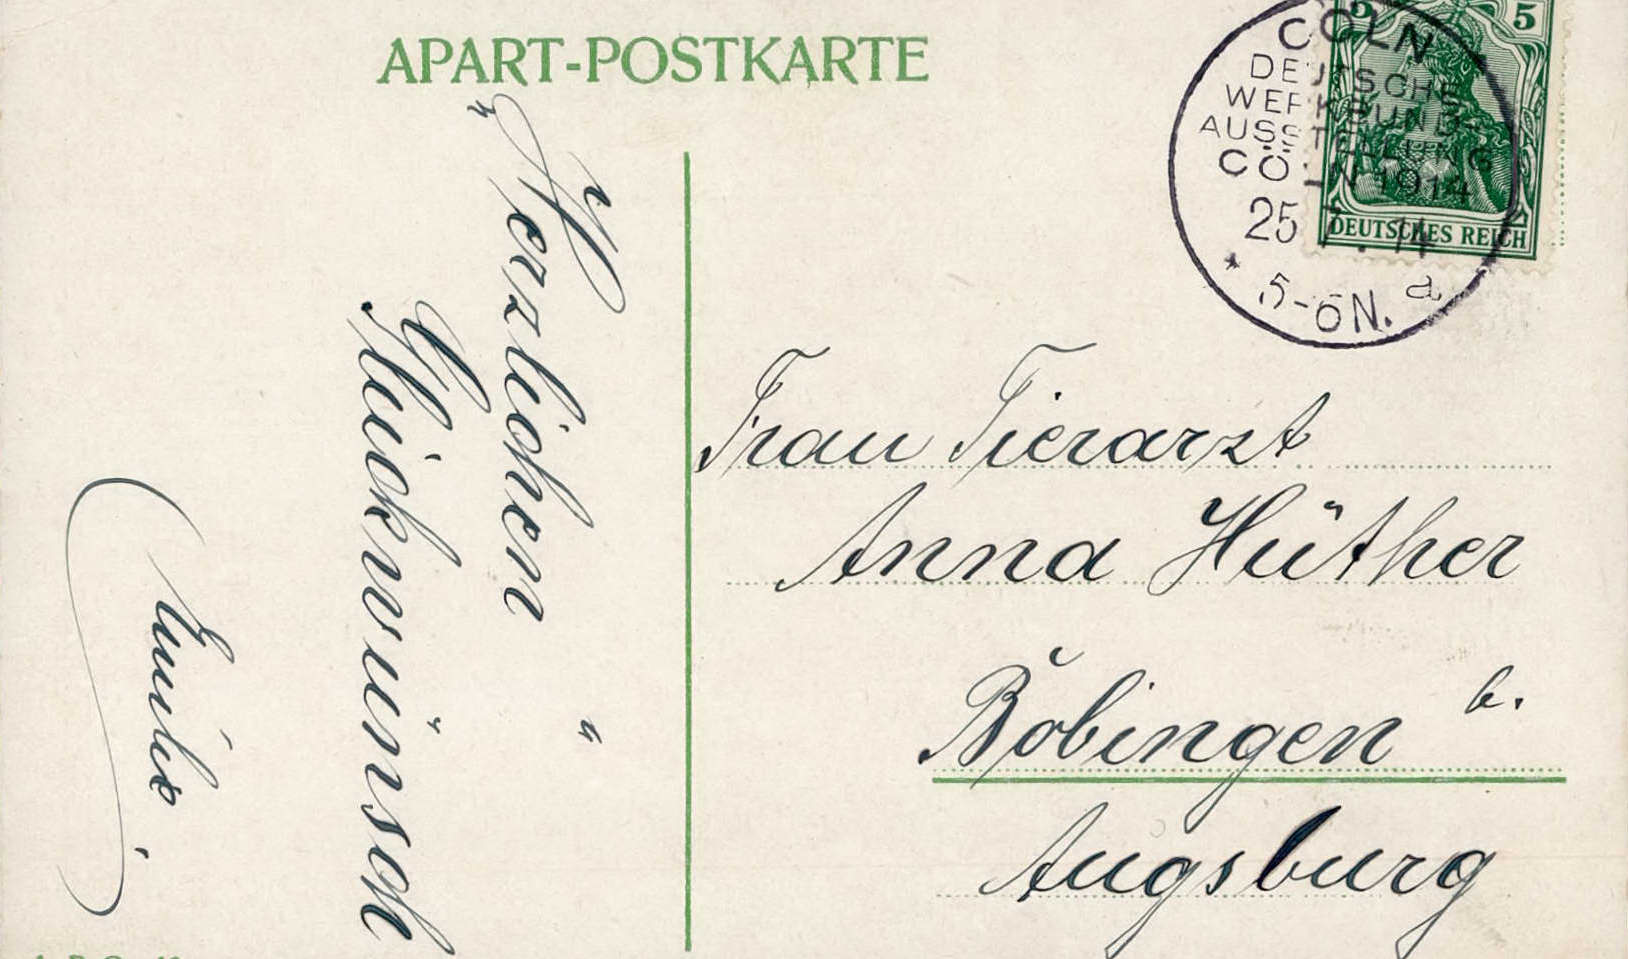 APART-POSTKARTE
„Herzlichen
Glückwünsch"
Emilie
5 5
DEUTSCHES REICH
CÖLN
DEUTSCHE
WERKBUND-
AUSSTELLUNG
CÖLN 1914
25.7.14
* 5-6N. a
Frau Tierarzt
Anna Hüther
Bobingen b.
Augsburg